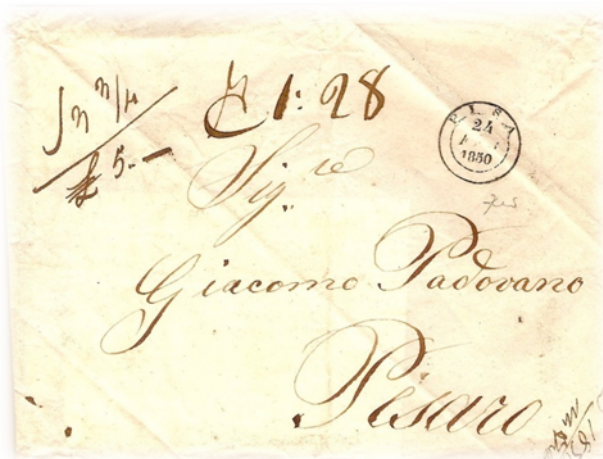 £ 5.—
1: 28
PISA
24
1850
Sig.re
Giacomo Padovano
Pesaro